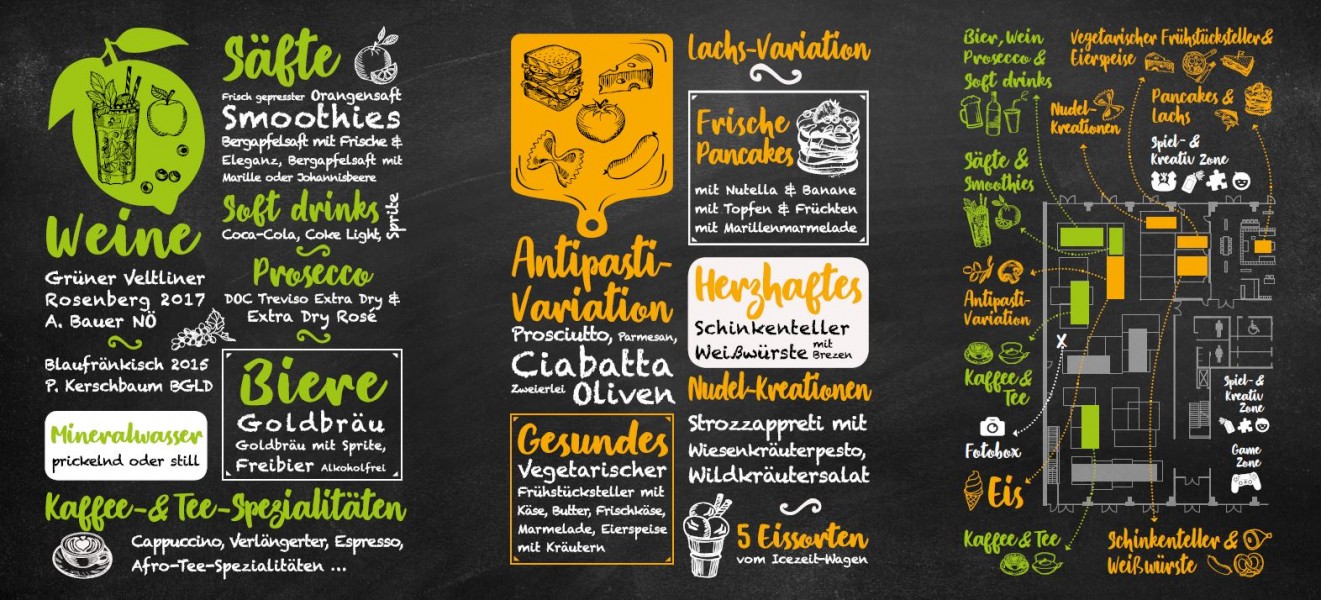 Säfte
Frisch gepresster Orangensaft
Smoothies
Bergapfelsaft mit Frische &
Eleganz, Bergapfelsaft mit
Marille oder Johannisbeere
Soft drinks
Coca-Cola, Coke Light, Sprite
Prosecco
DOC Treviso Extra Dry &
Extra Dry Rosé
Weine
Grüner Veltliner
Rosenberg 2017
A. Bauer NÖ
Blaufränkisch 2015
P. Kerschbaum BGLD
Mineralwasser
prickelnd oder still
Biere
Goldbräu
Goldbräu mit Sprite,
Freibier Alkoholfrei
Kaffee-& Tee-Spezialitäten
Cappuccino, Verlängerter, Espresso,
Afro-Tee-Spezialitäten ...
Antipasti-
Variation
Prosciutto, Parmesan,
Ciabatta
Zweierlei Oliven
Gesundes
Vegetarischer
Frühstücksteller mit
Käse, Butter, Frischkäse,
Marmelade, Eierspeise
mit Kräutern
Lachs-Variation
Frische
Pancakes
mit Nutella & Banane
mit Topfen & Früchten
mit Marillenmarmelade
Herzhaftes
Schinkenteller
Weißwürste mit Brezen
Nudel-Kreationen
Strozzappreti mit
Wiesenkräuterpesto,
Wildkräutersalat
5 Eissorten
vom Icezeit-Wagen
Bier, Wein
Prosecco &
Soft drinks
Vegetarischer Frühstücksteller &
Eierspeise
Nudel-
Kreationen
Pancakes &
Lachs
Spiel- &
Kreativ Zone
Säfte &
Smoothies
Antipasti-
Variation
Kaffee &
Tee
Fotobox
Eis
Kaffee & Tee
Spiel- &
Kreativ
Zone
Game
Zone
Schinkenteller &
Weißwürste